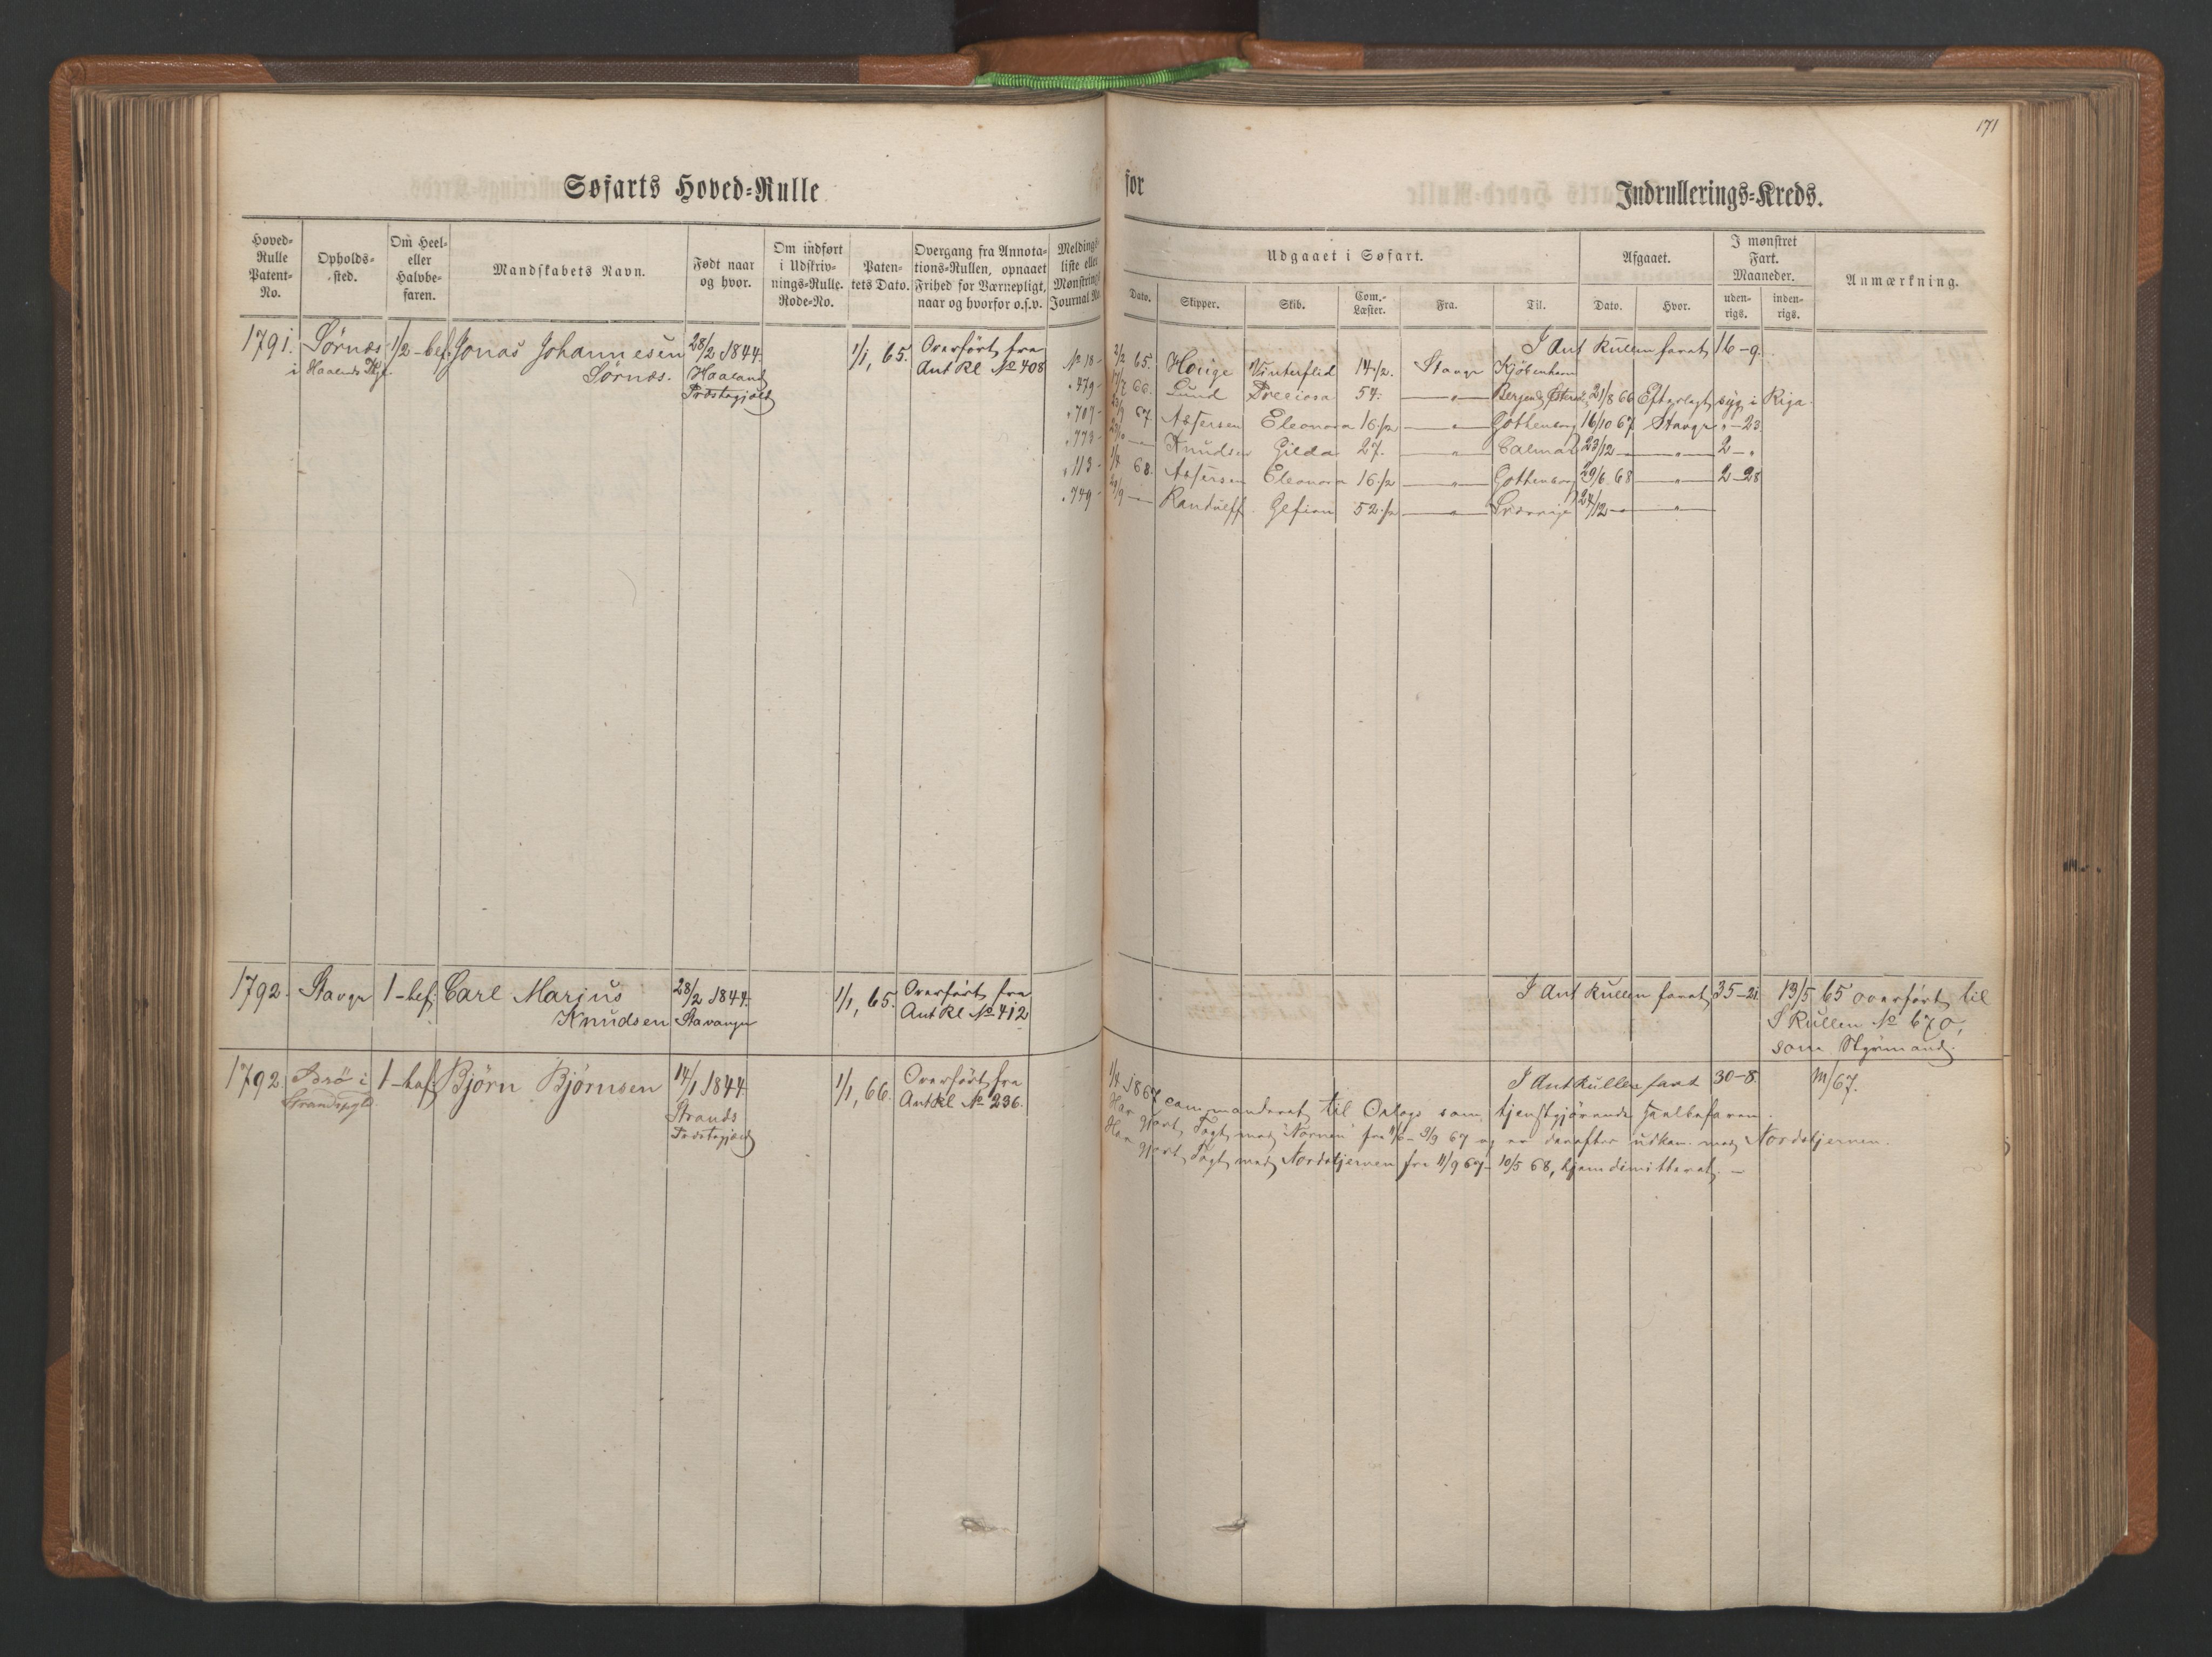 171
Søfarts Hoved-Rulle
for
Indrullerings-Kreds.
Hoved-Rulle Patent-No.
Opholds-sted.
Om Heel- eller Halvbe-faren.
Mandskabets Navn.
Født naar og hvor.
Om indført i Udskriv-nings-Rulle. Rode-No.
Paten-tets Dato.
Overgang fra Annota-tions-Rullen, opnaaet Frihed for Værnepligt, naar og hvorfor o.s.v.
Meldings-liste eller Mønstrings Journal No.
Udgaaet i Søfart.
Dato.
Skipper.
Skib.
Com.-Læster.
Fra.
Til.
Afgaaet.
Dato.
Hvor.
I mønstret Fart. Maaneder.
uden-rigs.
inden-rigs.
Anmærkning.
1791. Sörnæs 1/2-bef. Jonas Johannesen 28/2 1844. 1/1, 65. Overført fra
i Haalands Pgj. Sörnæs. Haaland Ant Rl № 408
Præstegjæld
I Ant Rullen faret 16-9.
№ 18- 2/2 65. Houge Vinterflid 14 1/2. Stavgr Kjöbenhavn
" 479- 17/7 66. Lund Preciosa 54. — " — Bergen & Östersö 21/8 66 Efterlagt syg i Riga.
" 707- 23/9 67. Assersen Eleonora 16 1/2 — " — Gothenborg 16/10 67 Stavgr " - 23
" 773- 23/10 — Knudsen Gilda 27. — " — Calmar 23/12 — " — 2 - "
" 113- 1/4 68. Assersen Eleonora 16 1/2 — " — Gothenborg 29/6 68 — " — 2-28
" 749- 29/9 — Randulff Gefion 52 1/2 — " — Sverrige 24/12 — " —
1792. Stavgr 1-bef. Carl Marius 28/2 1844. 1/1, 65. Overført fra
Knudsen Stavanger Ant Rl № 412
I Ant Rullen faret 35-21. 13/5 65 overført til
S Rullen № 670,
som Styrmand.
1792. Idsö i 1-bef. Björn Björnsen 14/1 1844. 1/1, 66. Overført fra
Strandspgld. Strands Ant Rl № 236.
Præstegjæld
I Ant Rullen faret 30-8. m/67.
1/4 1867 commanderet til Orlogs som tjenstgjörende heelbefaren.
Har gjort Togt med "Nornen" fra 11/6 - 9/9 67 og er derefter udkom. med Nordstjernen.
Har gjort Togt med Nordstjernen fra 11/9 67 - 10/5 68, hjemdimitteret. —